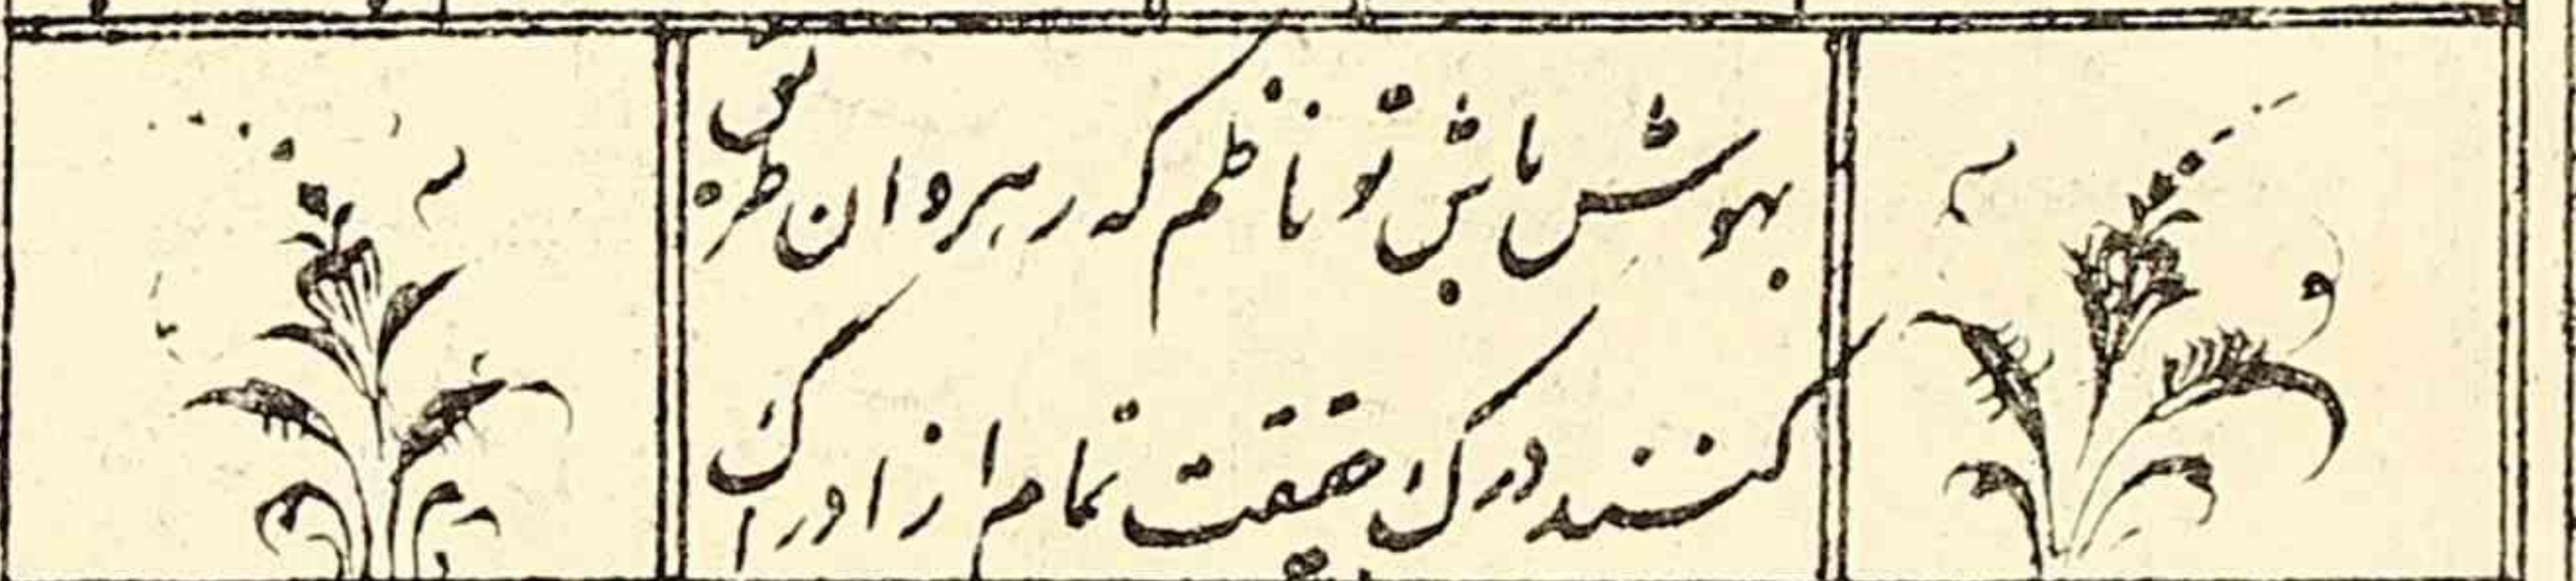 بهوش باش تو ناظم که رهروان طریق
کنند درک حقیقت تمام از اوراک